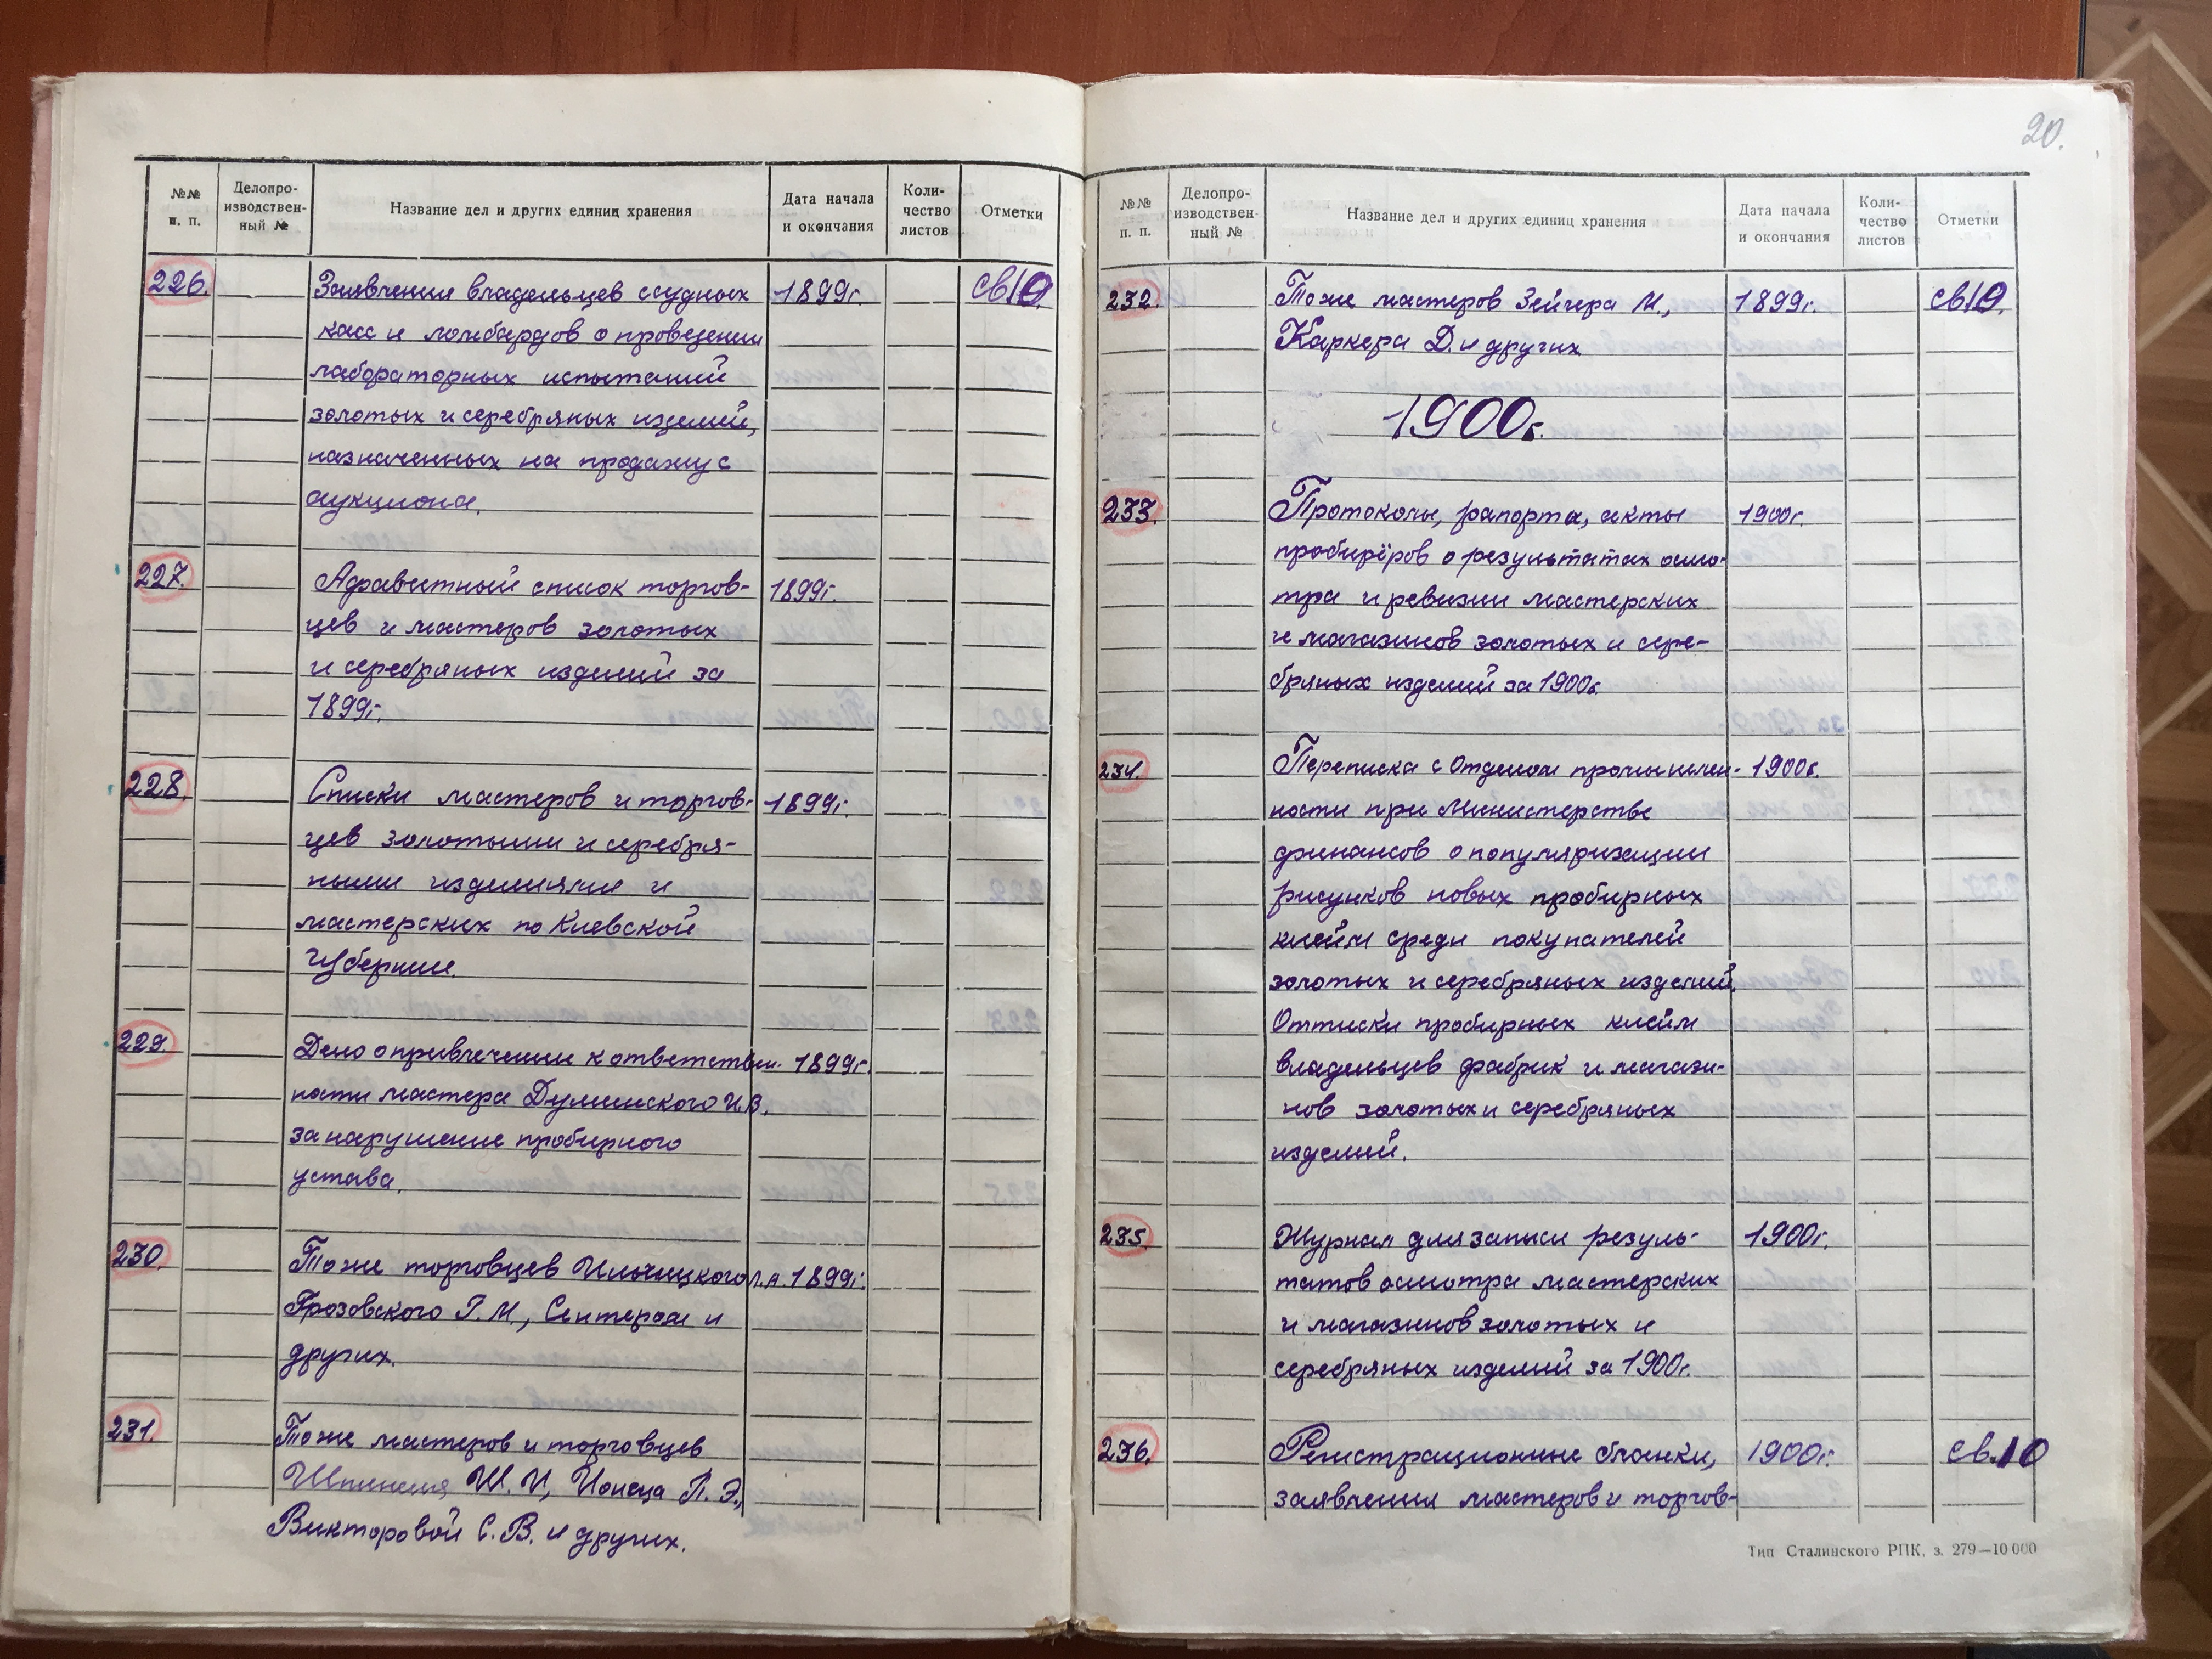 №№ п. п.
Делопро-
изводствен-
ный №
Название дел и других единиц хранения
Дата начала
и окончания
Коли-
чество
листов
Отметки
226. Заявления владельцев ссудных 1899г. св10.
касс и ломбардов о проведении
лабораторных испытаний
золотых и серебряных изделий,
назначенных на продажу с
аукциона.
227. Алфавитный список торгов- 1899г.
цев и мастеров золотых
и серебряных изделий за
1899г.
228. Списки мастеров и торгов- 1899г.
цев золотыми и серебря-
ными изделиями и
мастерских по Киевской
губернии.
229. Дело о привлечении к ответствен- 1899г.
ности мастера Думинского И.В.
за нарушение пробирного
устава.
230. То же торговцев Ильницкого Л.А. 1899г.
Грозовского Г.М., Сентера и
других.
231. То же мастеров и торговцев
Ш.И, Ионеца П.Э.,
Викторовой С.В. и других.
20.
№№
п. п.
Делопро-
изводствен-
ный №
Название дел и других единиц хранения
Дата начала
и окончания
Коли-
чество
листов
Отметки
232. То же мастеров Зейчера М., 1899г. св10.
Каркера Д. и других
1900г.
233. Протоколы, рапорта, акты 1900г.
пробирёров о результатах осмо-
тра и ревизии мастерских
и магазинов золотых и сере-
бряных изделий за 1900г.
234. Переписка с Отделом промышлен- 1900г.
ности при Министерстве
финансов о популяризации
рисунков новых пробирных
клейм среди покупателей
золотых и серебряных изделий.
Оттиски пробирных клейм
владельцев фабрик и магази-
нов золотых и серебряных
изделий.
235. Журнал для записи резуль- 1900г.
татов осмотра мастерских
и магазинов золотых и
серебряных изделий за 1900г.
236. Регистрационные бланки, 1900г. св.10
заявления мастеров и торгов-
Тип Сталинского РПК, з. 279—10 000